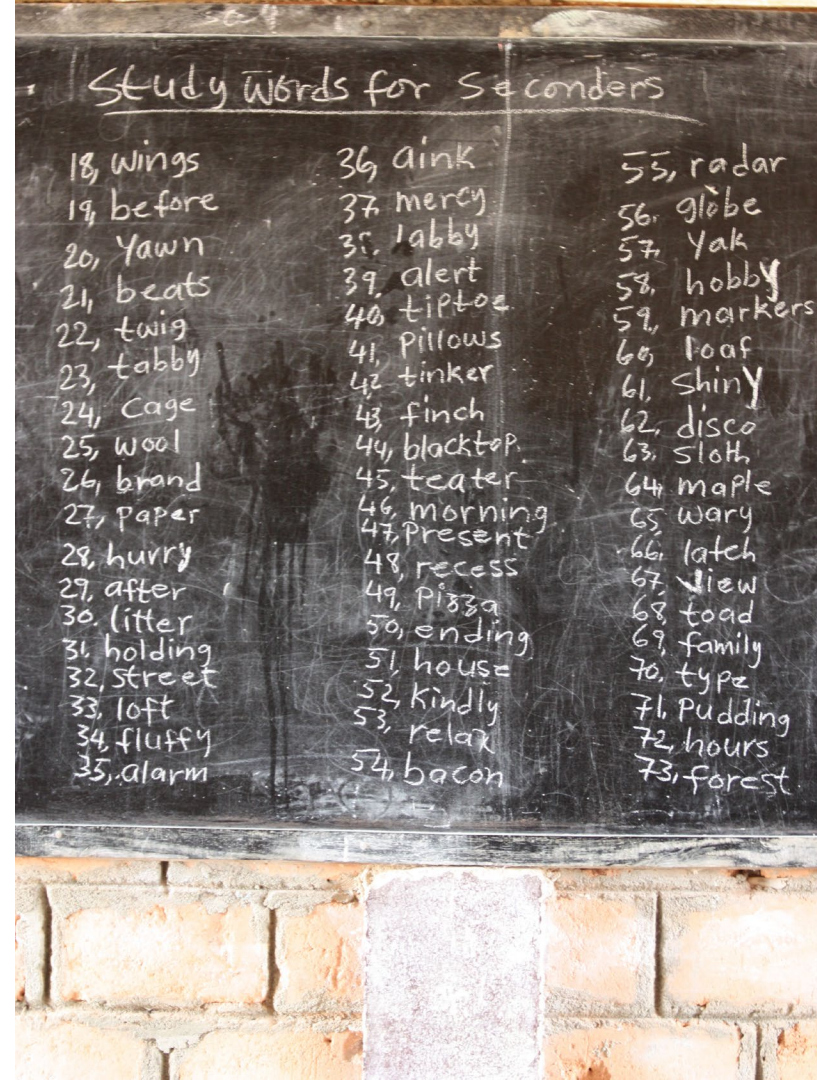 Study Words for Seconders
18, wings
19, before
20, Yawn
21, beats
22, twig
23, tabby
24, Cage
25, wool
26, brand
27, paper
28, hurry
29, after
30. litter
31. holding
32, street
33, loft
34, fluffy
35, alarm
36, aink
37. mercy
38. labby
39, alert
40, tiptoe
41, pillows
42 tinker
43, finch
44, blacktop.
45, teater
46, morning
47, present
48, recess
49, pizza
50, ending
51, house
52, kindly
53, relax
54, bacon
55, radar
56. globe
57, Yak
58, hobby
59, markers
60, loaf
61, Shiny
62, disco
63. sloth
64, maple
65, wary
66, latch
67, view
68 toad
69, family
70, type
71, Pudding
72, hours
73, forest